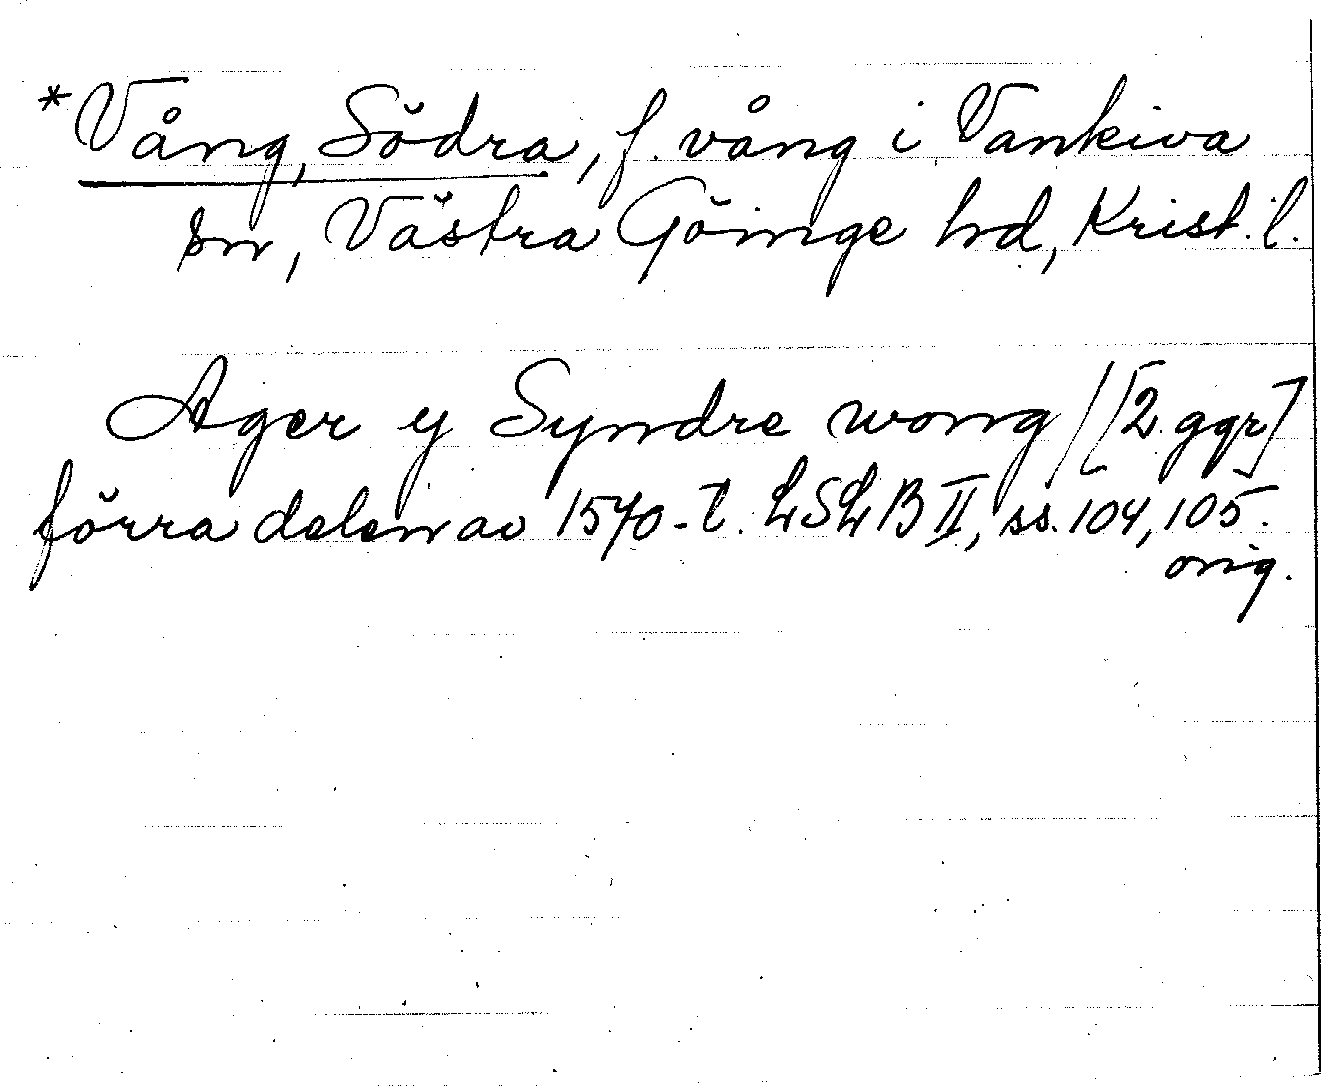 *Vång, Södra, f. vång i Vankiva
sn, Västra Göinge hd, Krist. l.
Ager y Syndre wong/[2 ggr]
förra delen av 1570-t. LSLB II, ss. 104, 105.
orig.